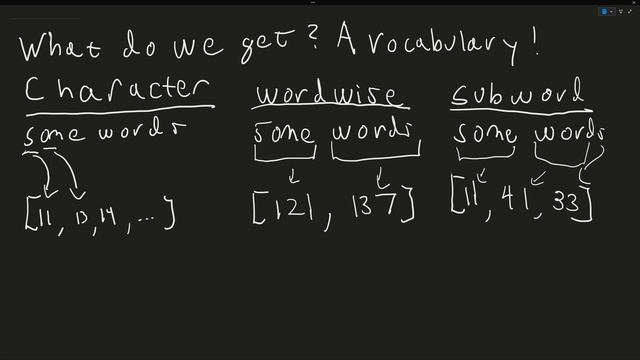 What do we get? A vocabulary!
Character
some words
[11, 13, 14, ...]
wordwise
some words
[121, 137]
subword
some words
[11, 41, 33]